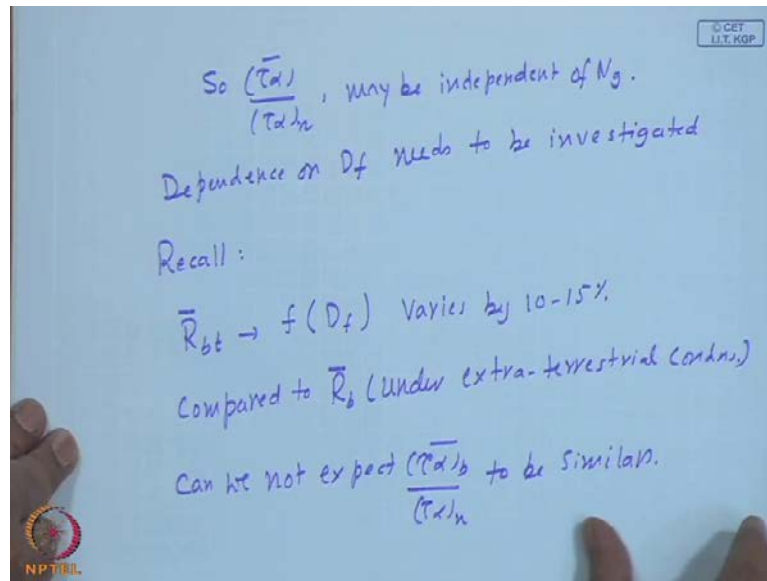 © CET
I.I.T. KGP
So (τα)̅ / (τα)n , may be independent of Ng.
Dependence on Df needs to be investigated
Recall :
R̅bt → f(Df) Varies by 10-15%.
Compared to R̅b (Under extra-terrestrial Condns.)
Can we not expect (τα)̅b / (τα)n to be similar.
NPTEL